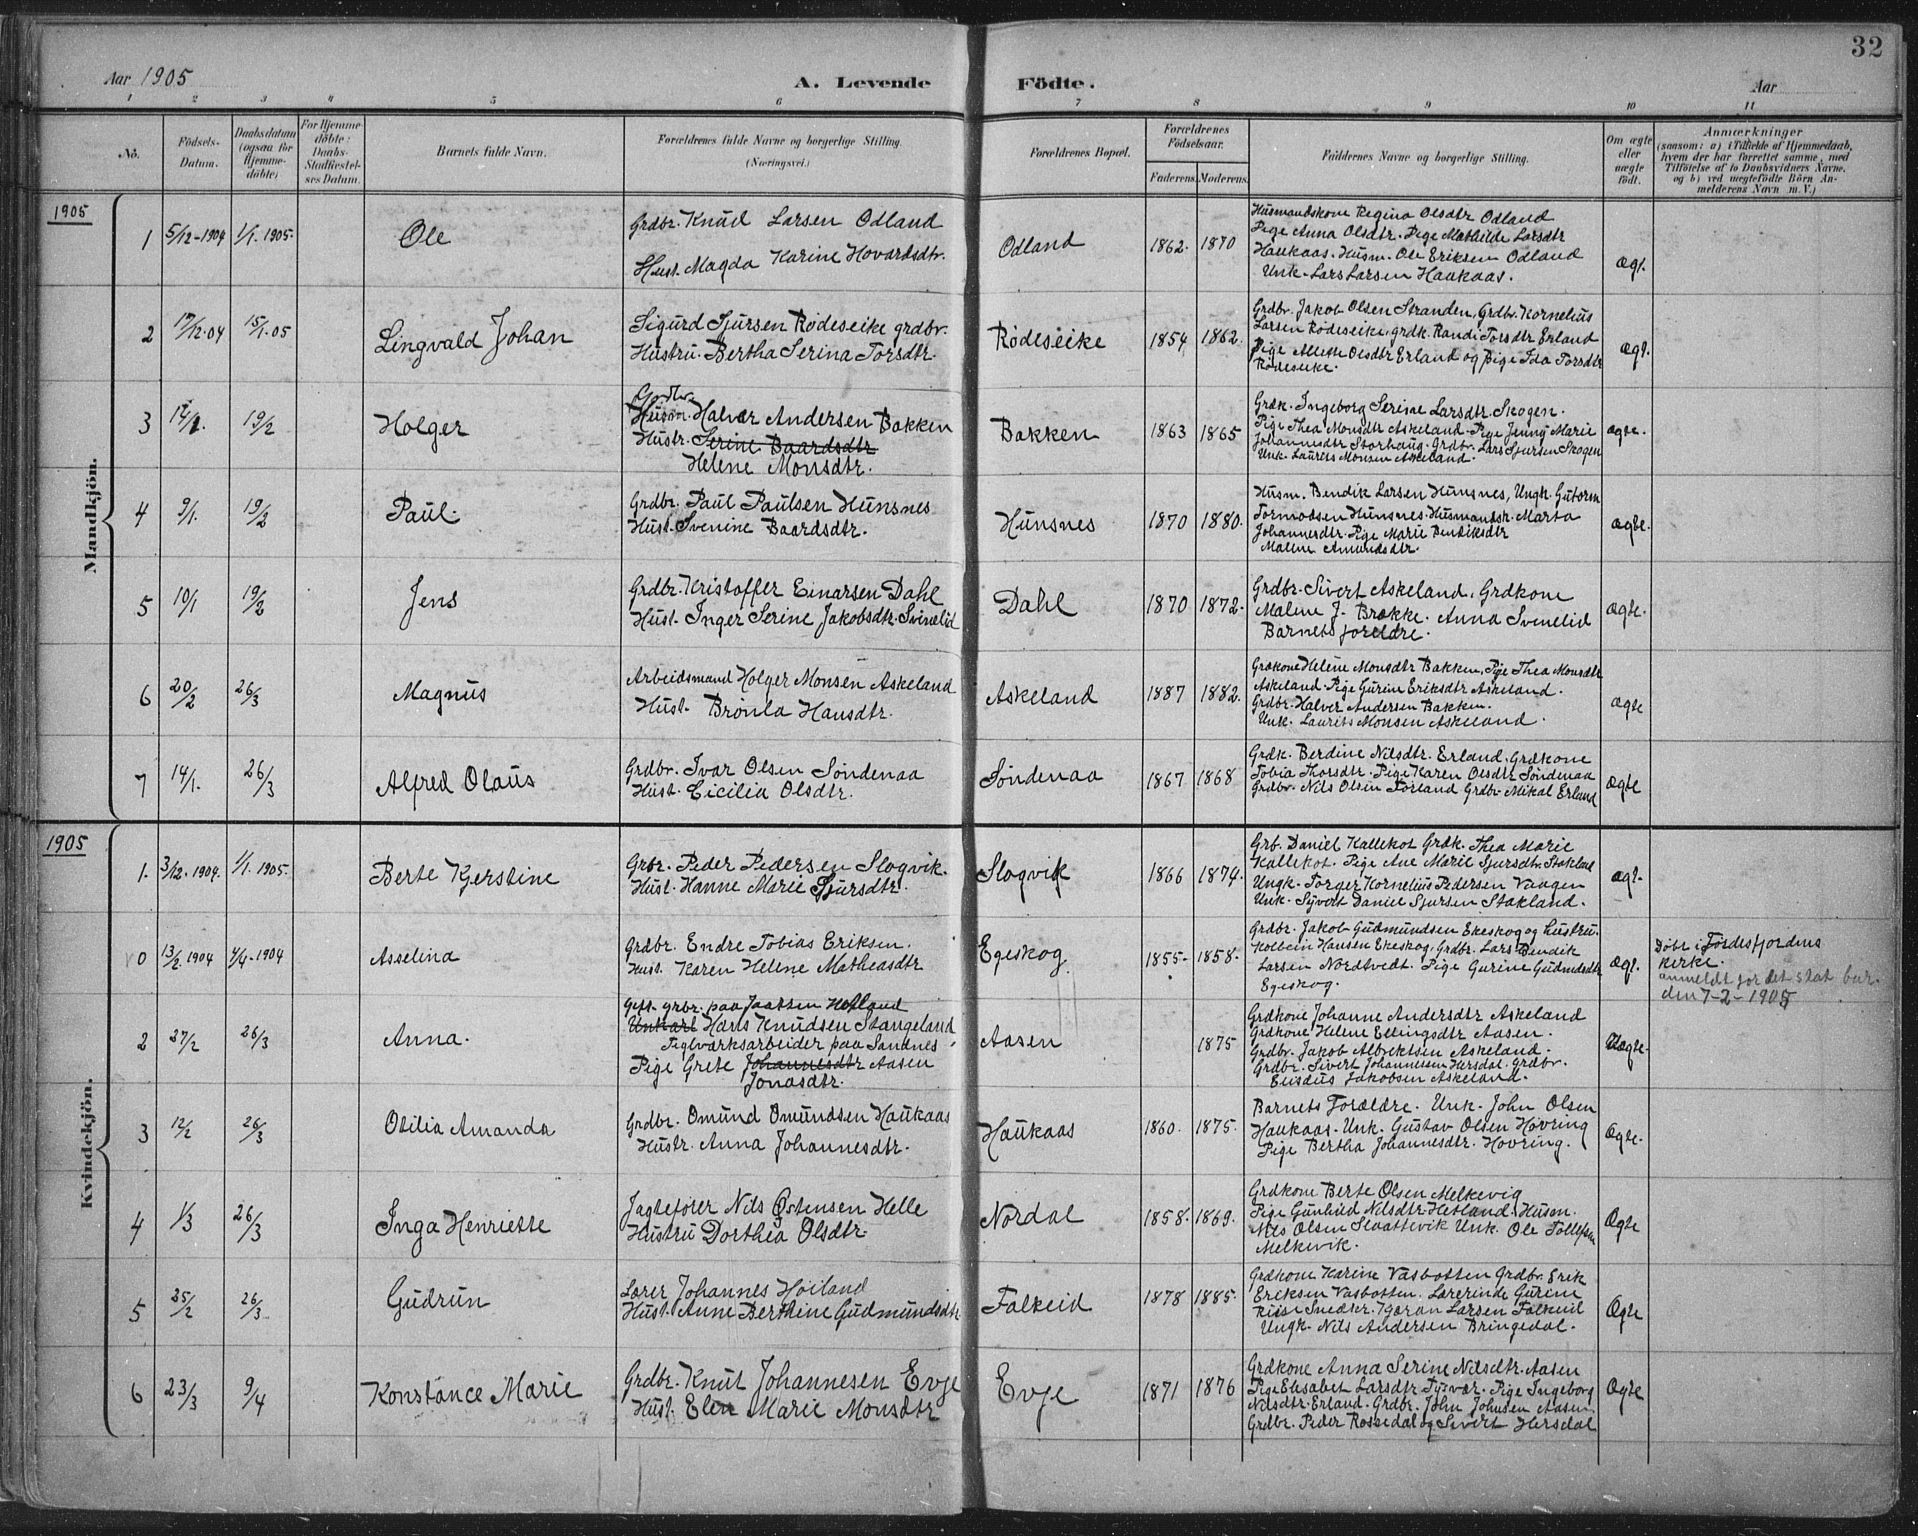 32
Aar 1905
A. Levende Födte.
Aar
1 2 3 4 5 6 7 8 9 10 11
No.
Födsels-Datum.
Daabsdatum (ogsaa for Hjemme-döbte)
For Hjemme-döbte: Daabs-Stadfæstel-ses Datum.
Barnets fulde Navn.
Forældrenes fulde Navne og borgerlige Stilling. (Næringsvei.)
Forældrenes Bopæl.
Forældrenes Födselsaar.
Faderens. Moderens.
Faddernes Navne og borgerlige Stilling.
Om ægte eller uægte födt.
Anmærkninger
(saasom: a) i Tilfælde af Hjemmedaab, hvem der har forrettet samme, med Tilföielse af to Daabsvidners Navne. og b) ved uægtefödte Börn An-melderens Navn m. V.)
Mandkjön.
1905
1 5/12-1904 1/1.1905. Ole
Grdbr. Knud Larsen Odland
Hust. Magda Karine Hovardsdtr.
Odland 1862. 1870
Husmandskone Regina Olsdtr Odland
Pige Anna Olsdtr. Pige Mathilde Larsdtr
Haukaas. Husm. Ole Eriksen Odland
Unk. Lars Larsen Haukaas.
ægt.
2 17/12.04 15/1.05 Lingvald Johan
Sigurd Sjursen Rødeseike grdbr.
Hustru. Bertha Serina Torsdtr.
Rødeseike 1854 1862.
Grdbr. Jakob Olsen Stranden, Grdbr. Kornelius
Larsen Rødeseike, grdk. Randi Torsdtr Erland
Pige Mette Olsdtr Erland og Pige Ida Torsdtr
Rødeseike.
ægt.
3 14/1. 19/2 Holger
Grdbr.
Husm. Halvor Andersen Bakken
Hustr. Serine Baardsdtr
Helene Monsdtr.
Bakken 1863 1865
Grdk. Ingeborg Serine Larsdtr. Skogen.
Pige Thea Monsdtr Askeland. Pige Jenny Marie
Johannesdtr Storhaug. Grdbr. Lars Sjursen Skogen
Unk. Laurits Monsen Askeland.
ægte.
4 9/1. 19/2 Paul.
Grdbr. Paul Paulsen Hunsnes
Hust. Svenine Baardsdtr.
Hunsnes 1870 1880.
Husm. Bendik Larsen Hunsnes, Ungk. Gutorm
Tormodsen Hunsnes. Husmandsk. Marta
Johannesdtr. Pige Marie Bendiksdtr
Malene Amundsdtr.
ægte.
5 10/1 19/2 Jens
Grdbr. Kristoffer Einarsen Dahl
Hust. Inger Serine Jakobsdtr. Svinelid
Dahl 1870 1872.
Grdbr. Sivert Askeland. Grdkone
Malene J. Brække. Anna Svinelid
Barnets foreldre.
ægte.
6 20/2 26/3 Magnus
Arbeidsmand Holger Monsen Askeland
Hust. Bronla Hansdtr.
Askeland 1887 1882.
Grdkone Helene Monsdtr Bakken, Pige Thea Monsdtr
Askeland. Pige Gurine Eriksdtr Askeland.
Grdbr. Halver Andersen Bakken.
Unk. Laurits Monsen Askeland.
ægte
7 14/1. 26/3 Alfred Olaus
Grdbr. Ivar Olsen Søndenaa
Hust. Cicilia Olsdtr.
Søndenaa 1867 1868
Grdk. Berdine Nilsdtr. Erland. Grdkone
Tobia Thorsdtr. Pige Karen Olsdtr Søndenaa
Grdbr. Nils Olsen Førland Grdbr. Mikal Erland
ægte
Kvindekjön.
1905
1. 3/12.1904. 1/1.1905. Berte Kjerstine
Grbr. Peder Pedersen Slogvik.
Hust. Hanne Marie Sjursdtr.
Slogvik 1866 1874.
Grb. Daniel Kallekot Grdk. Thea Marie
Kallekot. Pige Ane Marie Sjursdtr Stakland
Ungk. Torger Kornelius Pedersen Vaagen
Unk. Syvert Daniel Sjursen Stakland.
ægt.
0 13/2.1904 4/4-1904 Asselina
Grdbr. Endre Tobias Eriksen.
Hust. Karen Helene Matheasdtr
Egeskog 1855- 1858.
Grdbr. Jakob Gudmundsen Ekeskog og hustru.
Kolbein Hansen Ekeskog, Grdbr. Lars Bendik
Larsen Nordtvedt. Pige Gurine Gudmdsdtr
Egeskog.
ægt.
Døbt i Førdesfjordens
kirke.
anmeldt for det stat. bur.
den 7-2-1905
2 27/2 26/3 Anna.
Gift. grbr. paa Jaatten Hetland
Unkarl Hans Knudsen Stangeland
Teglværksarbeider paa Sandnes
Pige Grete Johannesdtr Aasen
Jonasdtr.
Aasen 1875
Grdkone Johanne Andersdtr Askeland
Grdkone Helene Ellingsdtr Aasen.
Grdbr. Jakob Albrektsen Askeland.
Grdbr. Sivert Johannesen Hersdal. grdbr.
Jakobsen Askeland.
Uægte.
3 12/2 26/3 Otilia Amanda
Grdbr. Omund Omundsen Haukaas
Hustr. Anna Johannesdtr.
Haukaas 1860. 1875.
Barnets Forældre. Unk. John Olsen
Haukaas. Unk. Gustav Olsen Hovring
Pige Bertha Johannesdtr. Hovring.
Ægte.
4 1/3 26/3 Inga Henriette
Jagtefører Nils Østensen Helle
Hustru Dorthea Olsdtr.
Nordal 1858. 1869.
Grdkone Berte Olsen Melkevig
Pige Gunhild Nilsdtr Hetland. Husm.
Nils Olsen Slaattevik Unk. Ole Tollefsen
Melkevik.
Ægte
5 25/2 26/3 Gudrun
Lærer Johannes Høiland
Hust. Anne Berthine Gudmundsdtr
Falkeid 1878 1885.
Grdkone Karine Vasbotten Grdbr. Erik
Eriksen Vasbotten. Lærerinde Gurine
Snedkr. Gøran Larsen Falkeid
Ungk. Nils Andersen Bringedal.
Ægte
6 23/3 9/4 Konstance Marie
Grdbr. Knut Johannesen Evje
Hust. Elen Marie Monsdtr
Evje 1871 1876
Grdkone Anna Serine Nilsdtr. Aasen
Pige Elisabet Larsdtr Tysvær. Pige Ingeborg
Nilsdtr. Erland. Grdbr. John Johnsen Aasen.
Grdbr. Peder Rossedal og Sivert Hersdal
Ægte